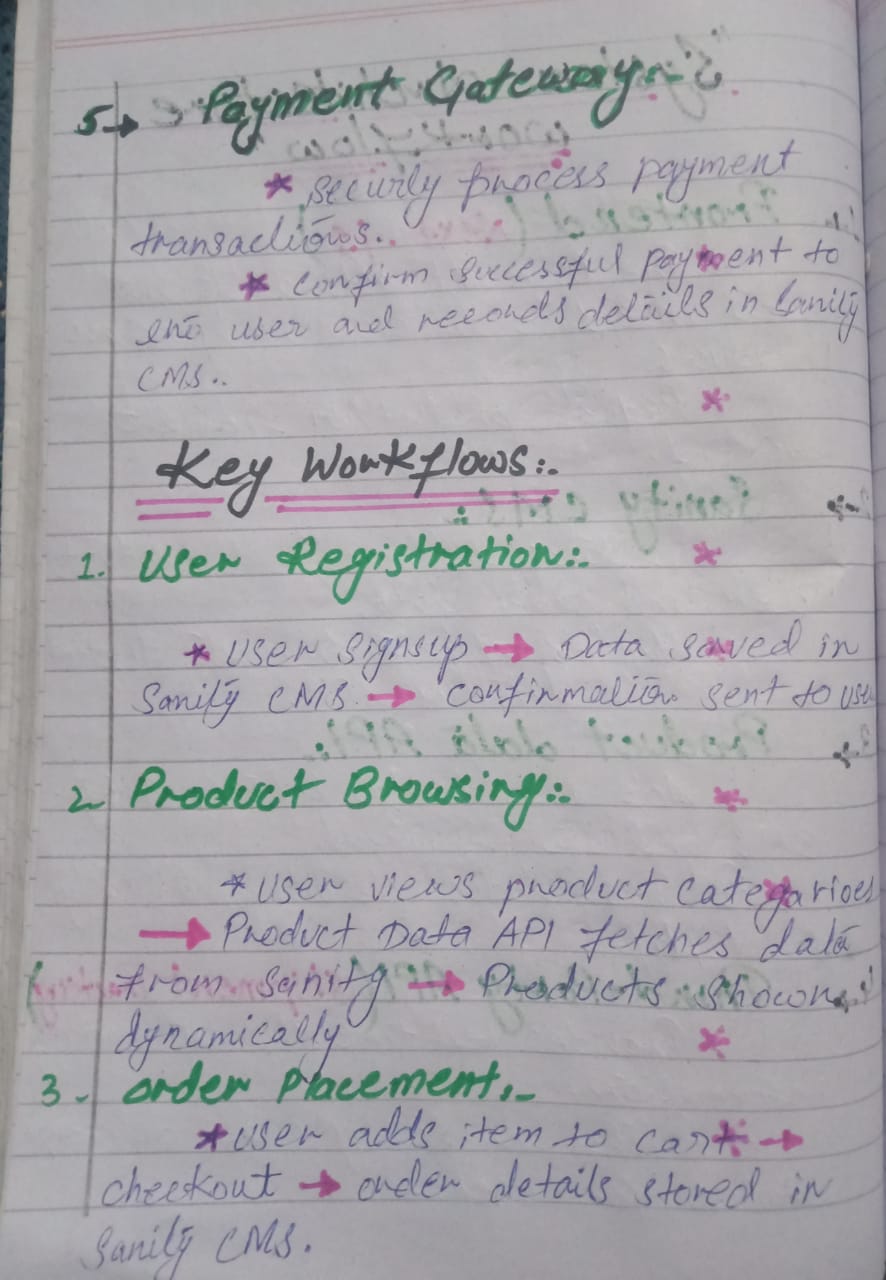 5→ Payment Gateway:-
* securly process payment
transactions.
* confirm successful payment to
the user and records details in Sanity
CMS..
Key Workflows:-
1. User Registration:-
* User Signsup → Data saved in
Sanity CMS → confirmation sent to use
2 Product Browsing:-
* user views product categories
→ Product Data API fetches data
from Sanity → Products shown
dynamically
3- order Placement:-
* user adds item to cart →
checkout → order details stored in
Sanity CMS.